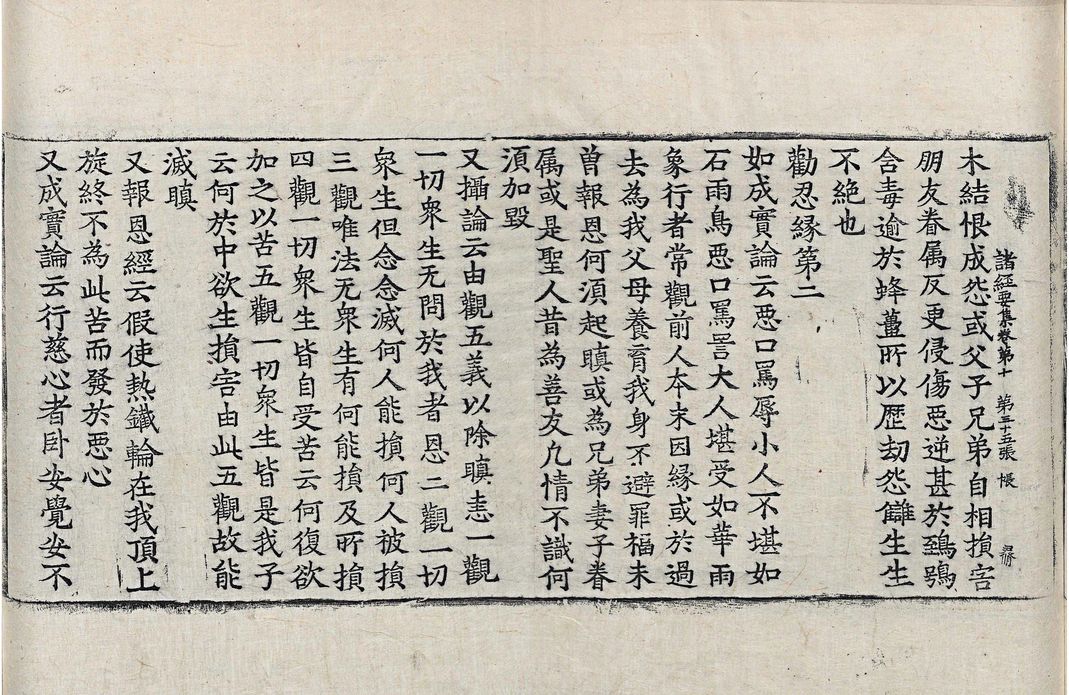 諸經要集卷第十 第三十五張 悵
木結恨成怨或父子兄弟自相損害
朋友眷属反更侵傷惡逆甚於鵄鴞
含毒逾於蜂蠆所以歷劫怨讎生生
不絶也
勸忍緣第二
如成實論云惡口罵辱小人不堪如
石雨鳥惡口罵詈大人堪受如華雨
象行者常觀前人本末因緣或於過
去為我父母養育我身不避罪福未
曽報恩何湏起瞋或為兄弟妻子眷
属或是聖人昔為善友凡情不識何
湏加毀
又攝論云由觀五義以除瞋恚一觀
一切衆生无問於我者恩二觀一切
衆生但念念滅何人能損何人被損
三觀唯法无衆生有何能損及所損
四觀一切衆生皆自受苦云何復欲
加之以苦五觀一切衆生皆是我子
云何於中欲生損害由此五觀故能
滅瞋
又報恩經云假使熱鐵輪在我頂上
旋終不為此苦而發於惡心
又成實論云行慈心者卧安覺安不